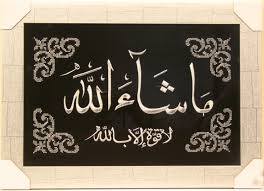 مَا شَآءَ اللّٰه
لا قوة إلا بالله